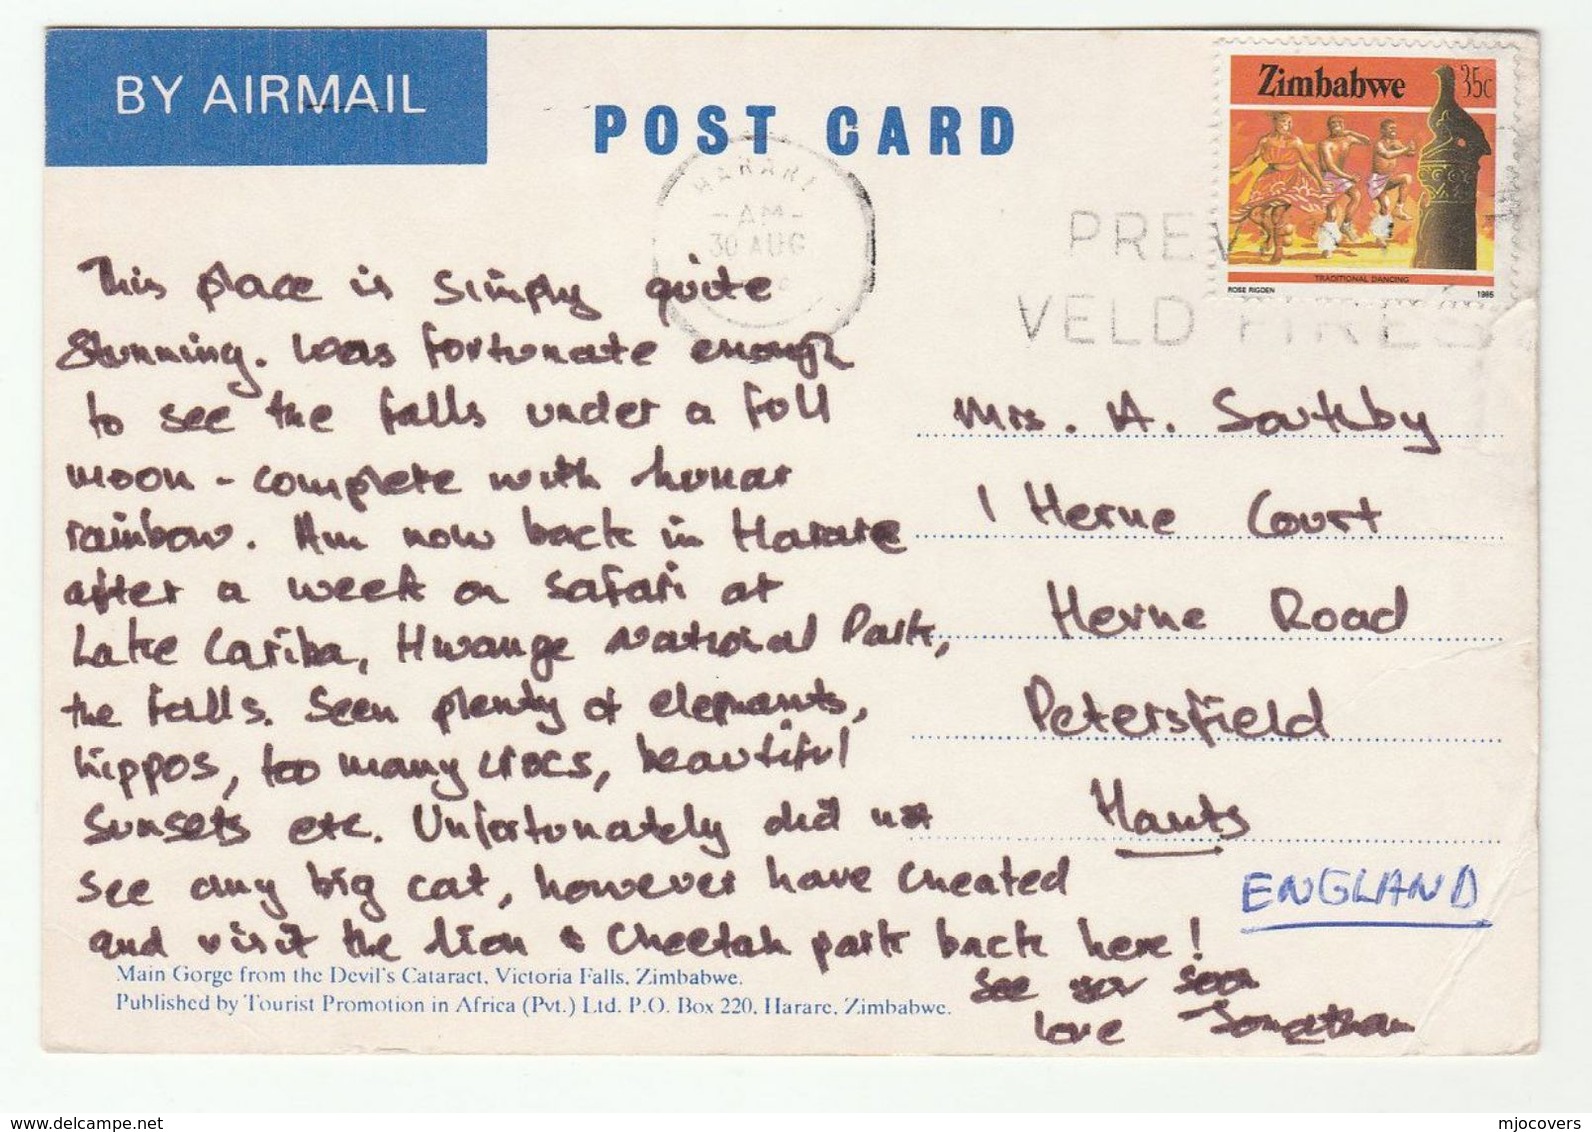 BY AIRMAIL
POST CARD
Zimbabwe 35c
TRADITIONAL DANCING
ROSE RIGDEN 1985
HARARE
-AM-
30 AUG
PREVE
VELD FIRES
This place is simply quite
stunning. Was fortunate enough
to see the falls under a full
moon - complete with lunar
rainbow. Am now back in Harare
after a week on safari at
Lake Cariba, Hwange National Park,
the falls. Seen plenty of elephants,
hippos, too many crocs, beautiful
sunsets etc. Unfortunately did not
see any big cat, however have cheated
and visit the lion & Cheetah park back here!
See you soon
love Jonathan
Mrs. A. Southby
1 Herne Court
Herne Road
Petersfield
Hants
ENGLAND
Main Gorge from the Devil's Cataract, Victoria Falls, Zimbabwe.
Published by Tourist Promotion in Africa (Pvt.) Ltd. P.O. Box 220, Harare, Zimbabwe.
www.delcampe.net
mjocovers